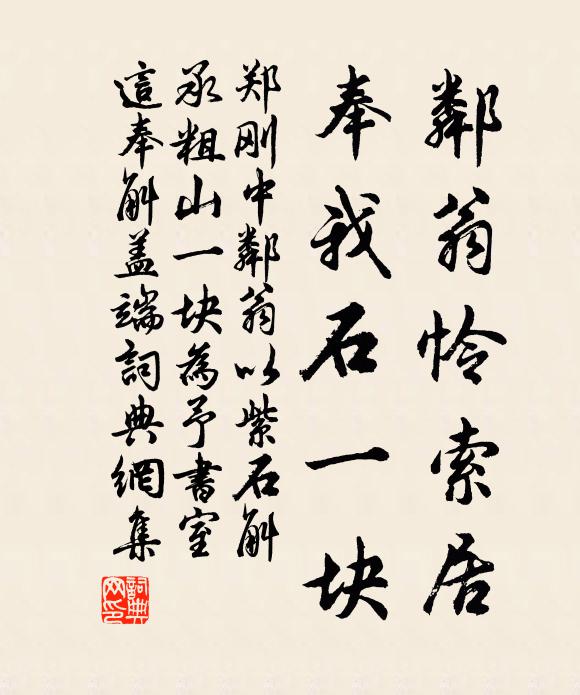 鄰翁怜索居
奉我石一块
郑刚中鄰翁以紫石斛
承粗山一块為予書室
這奉斛盖端詞典網集
詞典网印